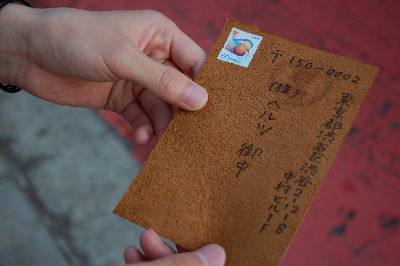 〒150-0002
東京都渋谷区渋谷2-12-8
中村ビル1F
(株)ヘルツ 御中